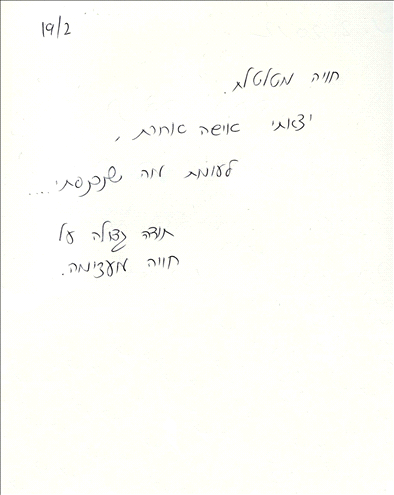 19/2
חויה מטלטלת.
יצאתי אישה אחרת,
לעומת מה שנכנסתי....
תודה גדולה על
חויה מעצימה.